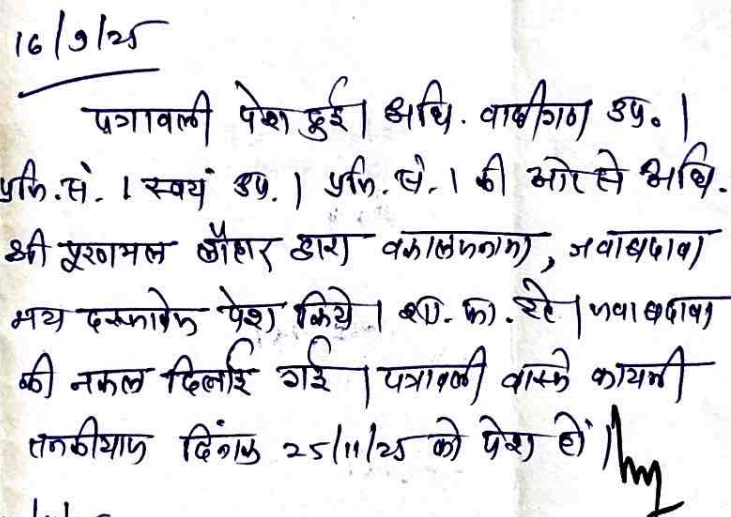 16/9/25
पत्रावली पेश हुई। अधि. वादीगण उप.।
प्रति.सं. 1 स्वयं उप.। प्रति.सं. 1 की ओर से अधि.
श्री पूरणमल लौहार द्वारा वकालतनामा, जवाबदावा
मय दस्तावेज पेश किये। शा. फा. रहे। जवाबदावा
की नकल दिलाई गई। पत्रावली वास्ते कायमी
तनकीयात दिनांक 25/11/25 को पेश हो।